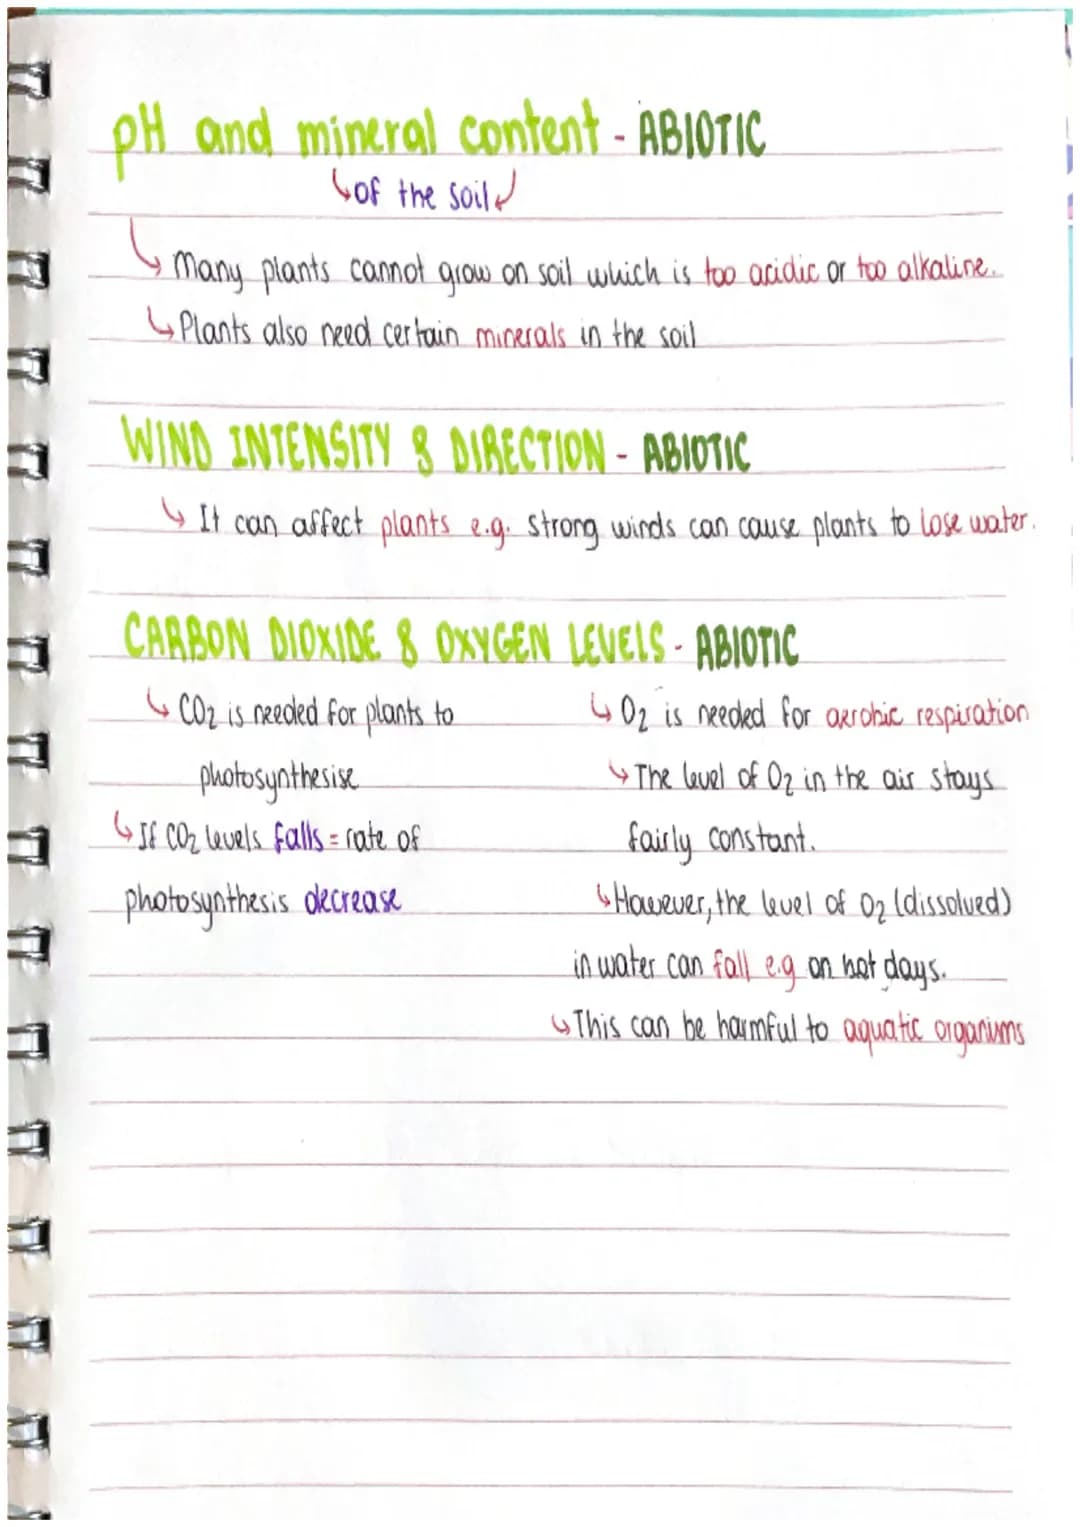 pH and mineral content - ABIOTIC
↳ of the soil ↲
↳ Many plants cannot grow on soil which is too acidic or too alkaline.
↳ Plants also need certain minerals in the soil
WIND INTENSITY & DIRECTION - ABIOTIC
↳ It can affect plants e.g. strong winds can cause plants to lose water.
CARBON DIOXIDE & OXYGEN LEVELS - ABIOTIC
↳ CO2 is needed for plants to
photosynthesise
↳ If CO2 levels falls = rate of
photosynthesis decrease
↳ O2 is needed for aerobic respiration
↳ The level of O2 in the air stays
fairly constant.
↳ However, the level of O2 (dissolved)
in water can fall e.g on hot days.
↳ This can be harmful to aquatic organisms